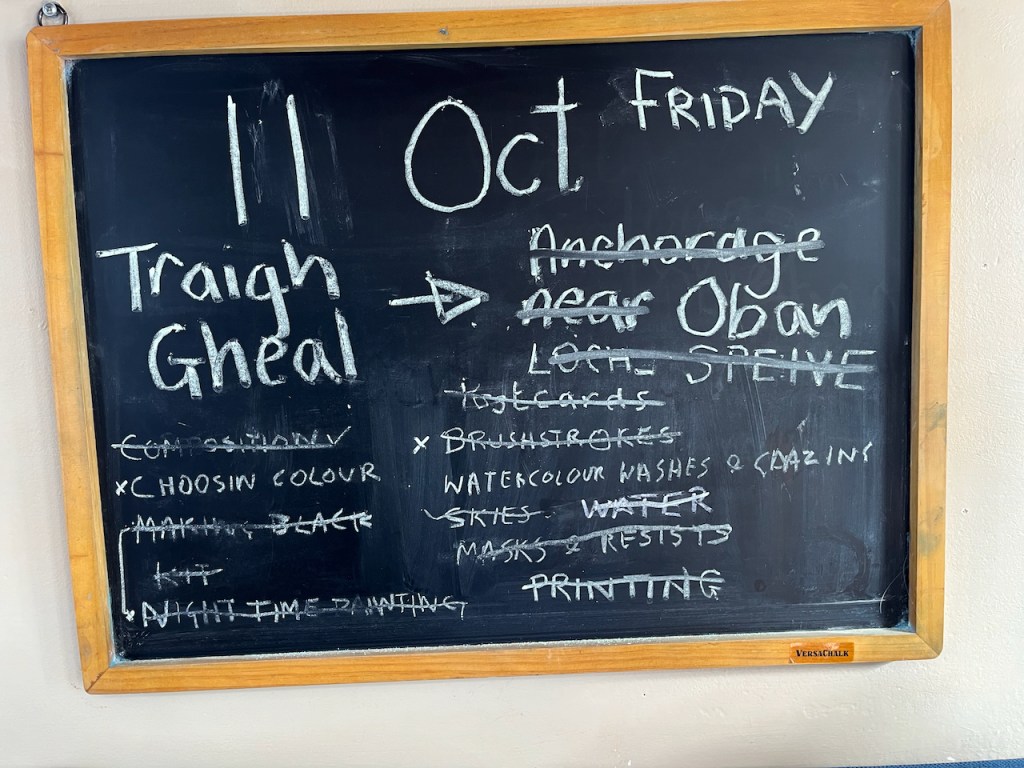 11 Oct FRIDAY
Traigh
Gheal
→
Anchorage
near Oban
LOCH SPELVE
Postcards
COMPOSITION ✓
x CHOOSIN COLOUR
MAKING BLACK
KIT
x NIGHT TIME PAINTING
x BRUSHSTROKES
WATERCOLOUR WASHES & GLAZING
✓ SKIES WATER
MASKS & RESISTS
PRINTING
VERSACHALK